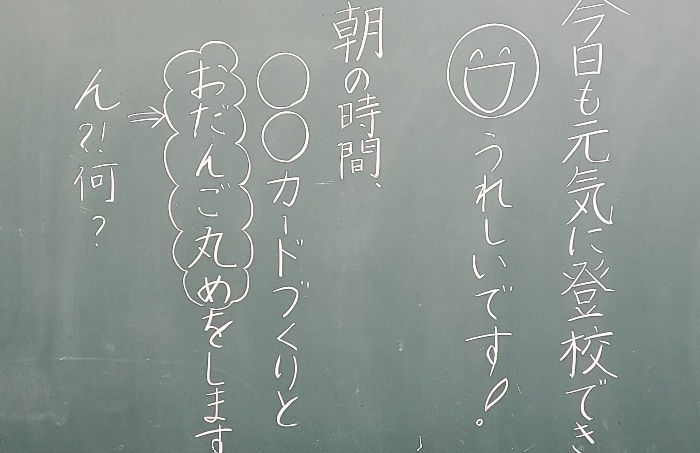 今日も元気に登校でき
うれしいです!。
朝の時間、
○○カードづくりと
おだんご丸めをします
ん?!何?